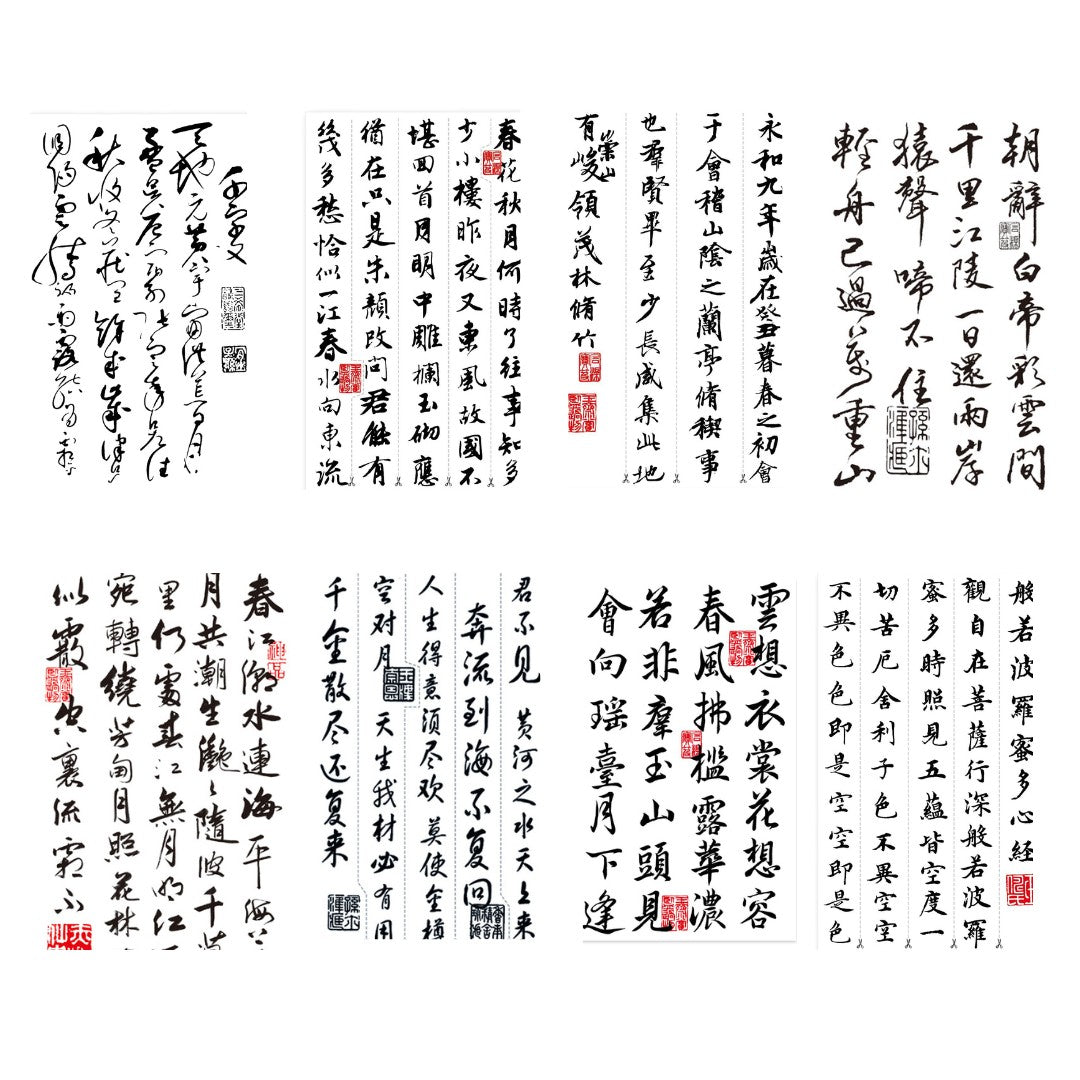 千字文
天地元黄宇宙洪荒日月
盈昃辰宿列張寒来暑往
秋收冬藏閏餘成歲律呂
調陽雲騰致雨露結為霜
春花秋月何時了往事知多
少小樓昨夜又東風故國不
堪回首月明中雕欄玉砌應
猶在只是朱顏改問君能有
幾多愁恰似一江春水向東流
永和九年歲在癸丑暮春之初會
于會稽山陰之蘭亭脩禊事
也羣賢畢至少長咸集此地
有崇山峻領茂林脩竹
朝辭白帝彩雲間
千里江陵一日還兩岸
猿聲啼不住
輕舟已過萬重山
春江潮水連海平海上
月共潮生灔灔隨波千萬
里何處春江無月明江
宛轉繞芳甸月照花林
似霰空裏流霜不
君不见黄河之水天上来
奔流到海不复回
人生得意须尽欢莫使金樽
空对月天生我材必有用
千金散尽还复来
雲想衣裳花想容
春風拂檻露華濃
若非羣玉山頭見
會向瑶臺月下逢
般若波羅蜜多心經
觀自在菩薩行深般若波羅
蜜多時照見五蘊皆空度一
切苦厄舍利子色不異空空
不異色色即是空空即是色